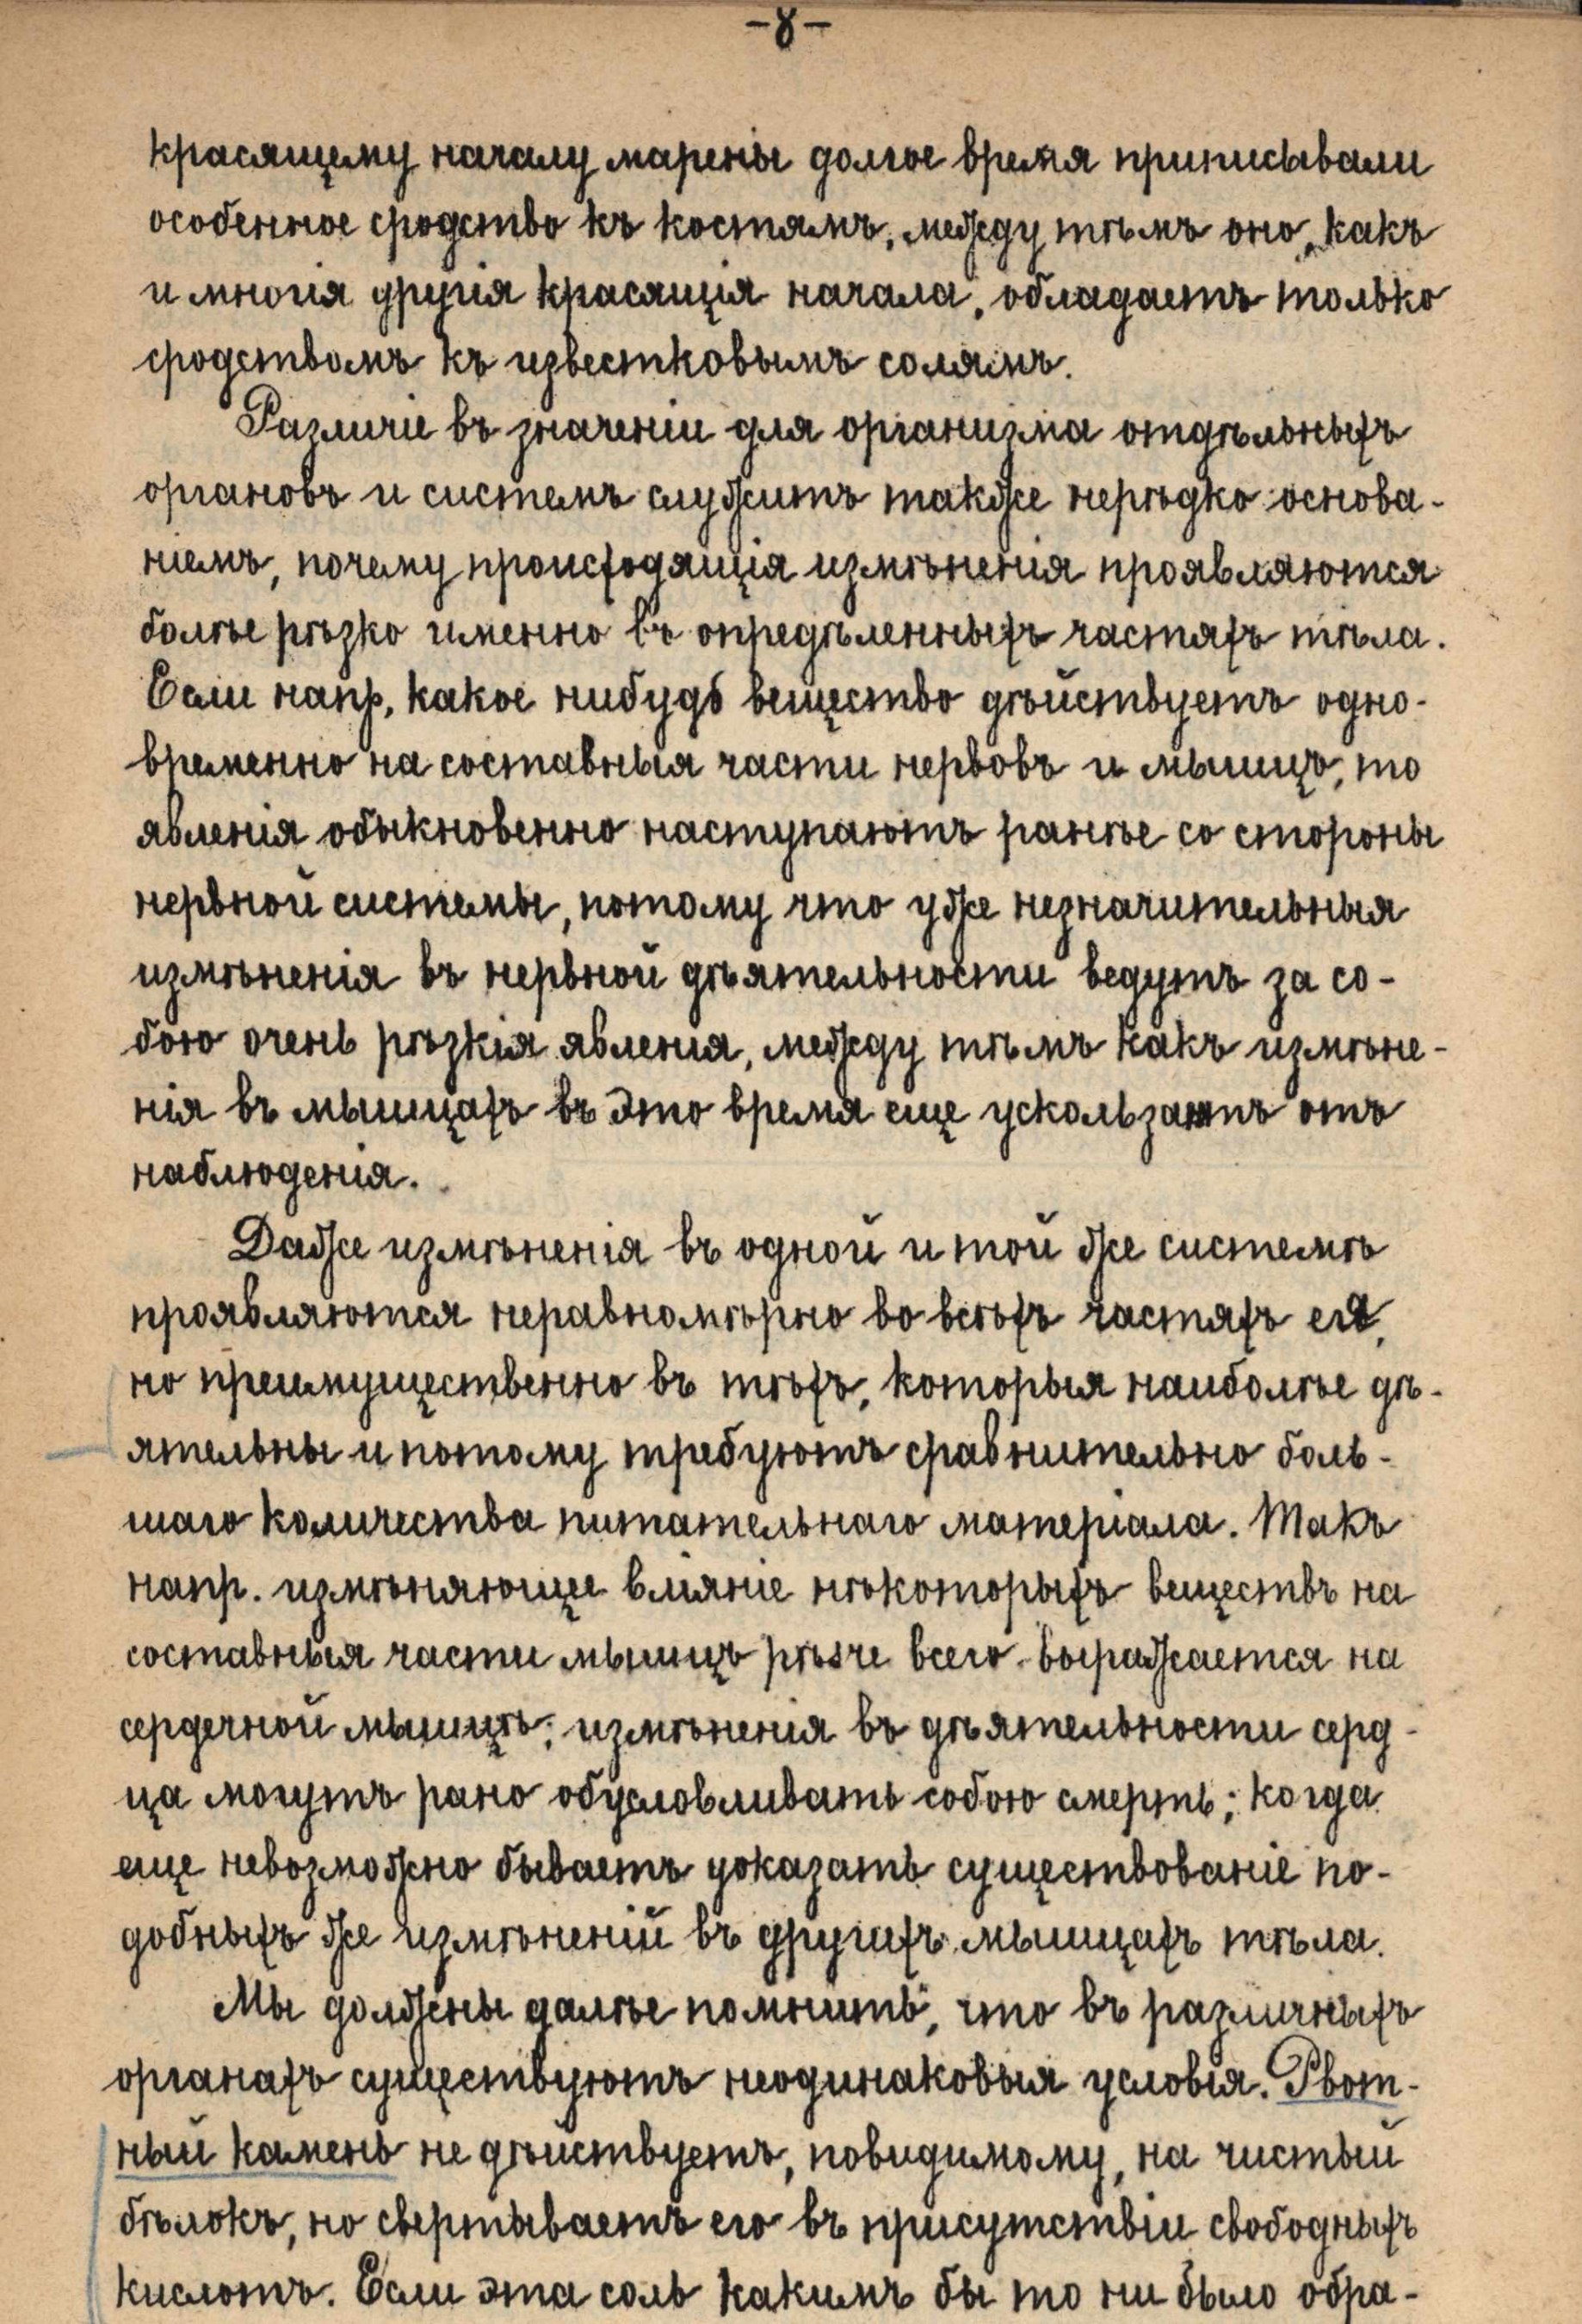 -8-
красящему началу марены долгое время приписывали
особенное сродство къ костямъ, между тѣмъ оно, какъ
и многія другія красящія начала, обладаетъ только
сродствомъ къ известковымъ солямъ.
Различіе въ значеніи для организма отдѣльныхъ
органовъ и системъ служитъ также нерѣдко основа-
ніемъ, почему происходящія измѣненія проявляются
болѣе рѣзко именно въ опредѣленныхъ частяхъ тѣла.
Если напр, какое нибудь вещество дѣйствуетъ одно-
временно на составныя части нервовъ и мышцъ, то
явленія обыкновенно наступаютъ ранѣе со стороны
нервной системы, потому что уже незначительныя
измѣненія въ нервной дѣятельности ведутъ за со-
бою очень рѣзкія явленія, между тѣмъ какъ измѣне-
нія въ мышцахъ въ это время еще ускользаютъ отъ
наблюденія.
Даже измѣненія въ одной и той же системѣ
проявляются неравномѣрно во всѣхъ частяхъ ея,
но преимущественно въ тѣхъ, которыя наиболѣе дѣ-
ятельны и потому требуютъ сравнительно боль-
шаго количества питательнаго матеріала. Такъ
напр. измѣняющее вліяніе нѣкоторыхъ веществъ на
составныя части мышцъ рѣзче всего выражается на
сердечной мышцѣ; измѣненія въ дѣятельности серд-
ца могутъ рано обусловливать собою смерть; когда
еще невозможно бываетъ доказать существованіе по-
добныхъ же измѣненій въ другихъ мышцахъ тѣла.
Мы должны далѣе помнить, что въ различныхъ
органахъ существуютъ неодинаковыя условія. Рвот-
ный камень не дѣйствуетъ, повидимому, на чистый
бѣлокъ, но свертываетъ его въ присутствіи свободныхъ
кислотъ. Если эта соль какимъ бы то ни было обра-